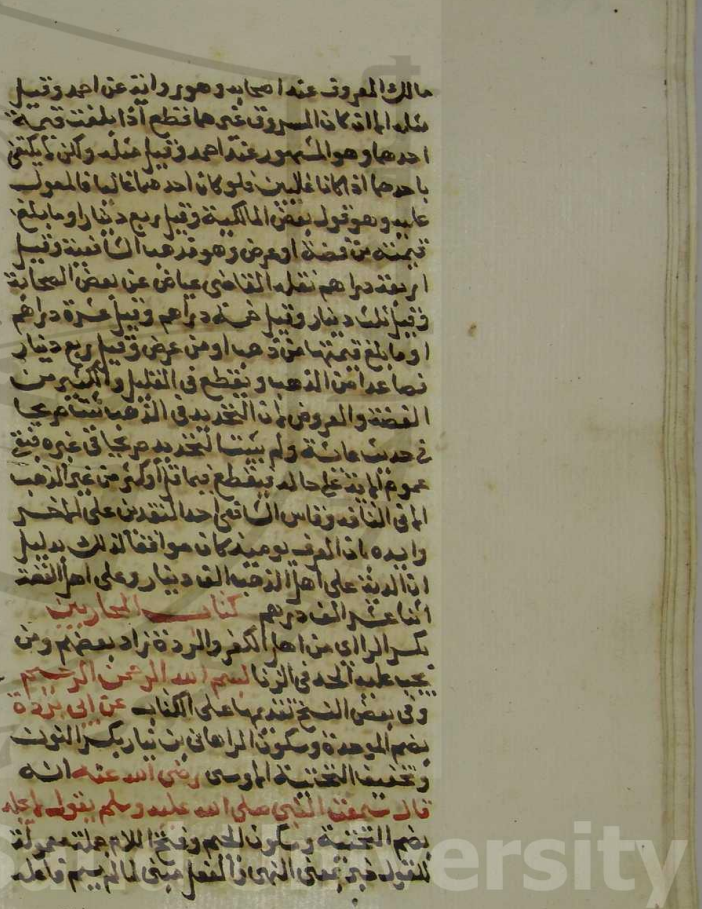 مالك المعروف عند اصحابه وهو رواية عن احمد وقيل
مثله الا ان كان المسروق غيرهما قطع اذا بلغت قيمته
احدهما وهو المشهور عند احمد وقيل مثله ولكن لا يكتفى
باحدهما اذا كانا غالبين فلو كان احدهما غالبا فالمعول
عليه وهو قول بعض المالكية وقيل ربع دينار او ما بلغ
قيمته من فضة او عرض وهو مذهب الشافعية وقيل
اربعة دراهم نقله القاضي عياض عن بعض الصحابة
وقيل ثلث دينار وقيل خمسة دراهم وقيل عشرة دراهم
او ما بلغ قيمتها من ذهب او من عرض وقيل ربع دينار
فصاعدا من الذهب ويقطع في القليل والكثير من
الفضة والعروض لان التحديد في الذهب ثبت صريحا
في حديث عائشة ولم يثبت التحديد صريحا في غيره فبقي
عموم الاية على حاله فيقطع فيما قل او كثر من غير الذهب
الا في التافه وقاس الشافعي احد النقدين على الاخر
وايده بان الصرف يومئذ كان موافقا لذلك بدليل
ان الدية على اهل الذهب الف دينار وعلى اهل الفضة
اثنا عشر الف درهم كتاب المحاربين
بكسر الراء اي من اهل الكفر والردة زاد بعضهم ومن
يجب عليه الحد في الزنا بسم الله الرحمن الرحيم
وفي بعض النسخ تقديمها على الكتاب عن ابي بردة
بضم الموحدة وسكون الراء هانئ بن نيار بكسر النون
وتخفيف التحتية الاوسي رضي الله عنه انه
قال سمعت النبي صلى الله عليه وسلم يقول لا يجلد
بضم التحتية وسكون الجيم وفتح اللام جملة معمولة
للقول خبر بمعنى النهي والفعل مبني لما لم يسم فاعله